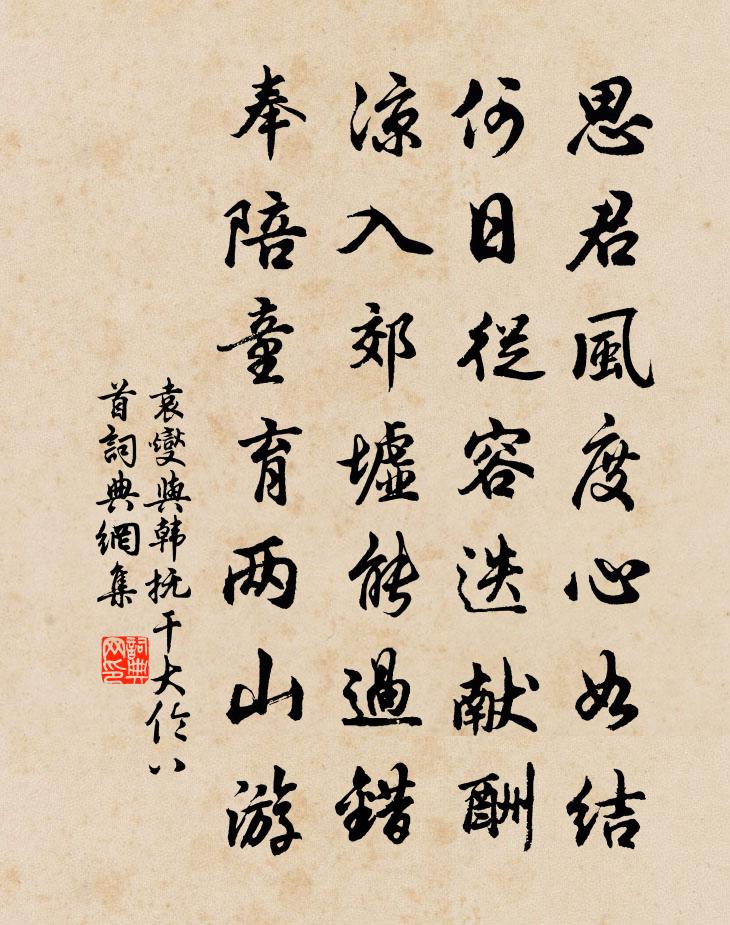 思君風度心如结
何日從容迭献酬
凉入郊墟能過錯
奉陪童育两山游
袁燮與韩抚干大伦八
首詞典網集
詞典
网印